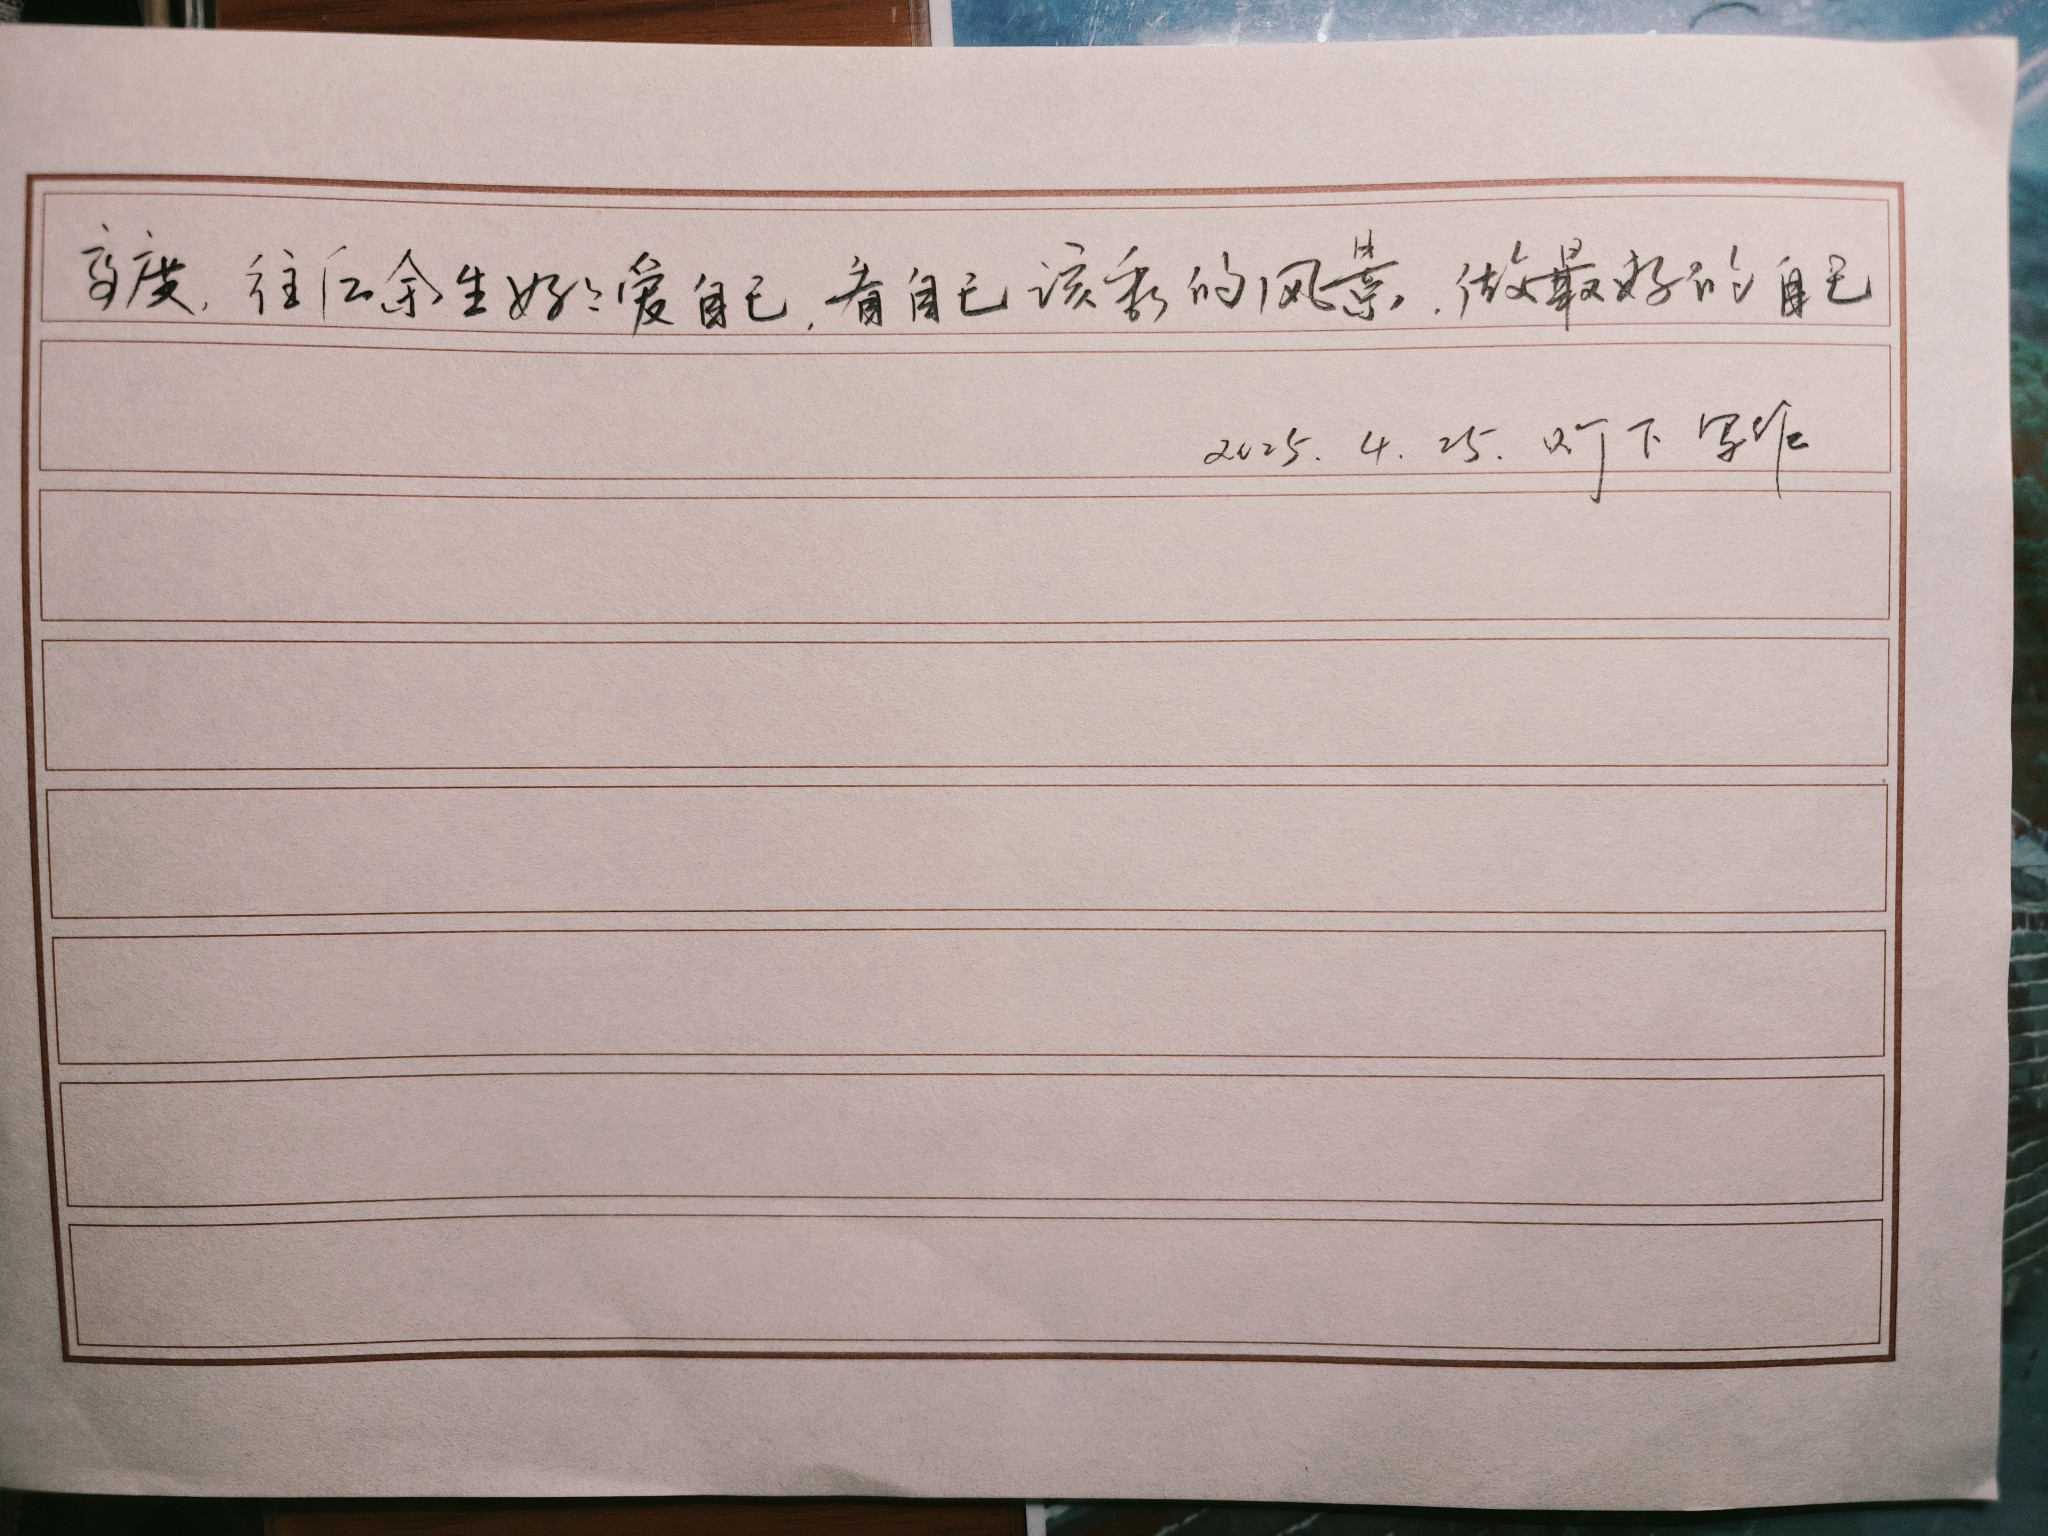 高度，往后余生好好爱自己，看自己该看的风景，做最好的自己
2025.4.25.灯下写作